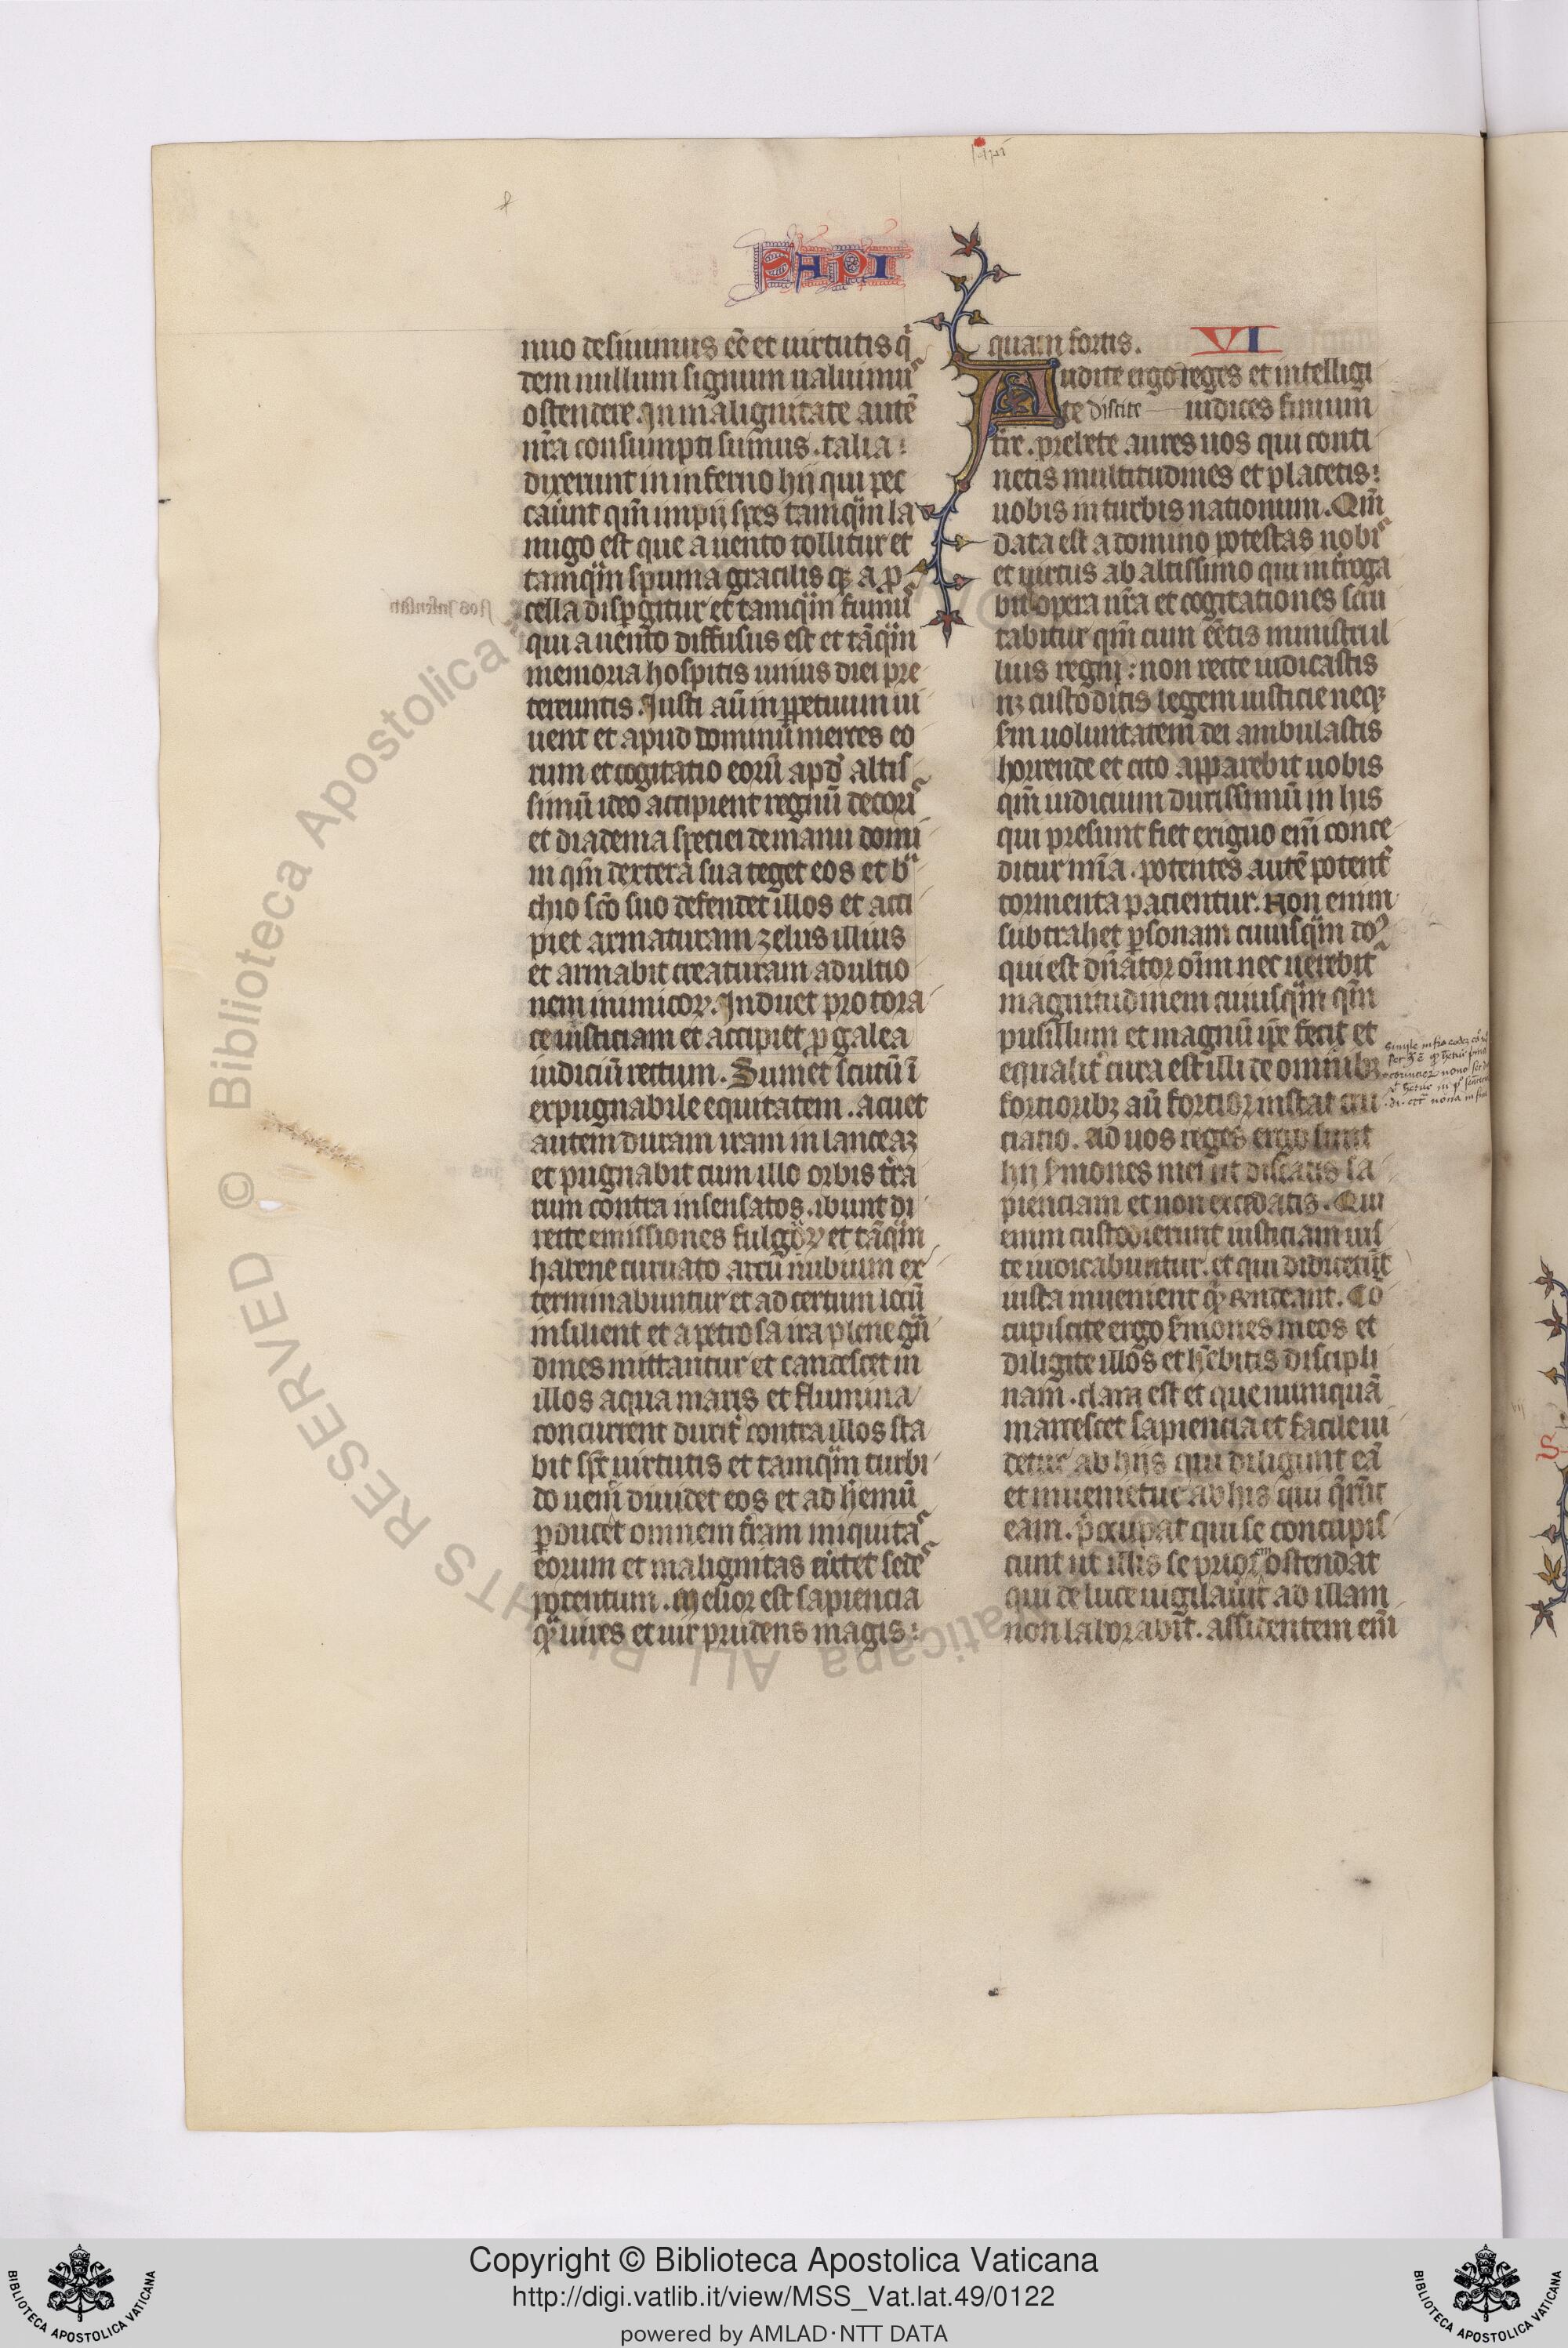 SAPI
nuo desiuimus eē et uirtutis q̄
dem nullum signum ualuimus
ostendere. In malignitate autē
nr̄a consumpti sumus. talia:
dixerunt in inferno hij qui pec
cauūt qm̄ impij spes tamqͣm la
nugo est que a uento tollitur et
tamqͣm spuma gracilis q̄ a p
cella dispgitur et tamqͣm fumus
qui a uento diffusus est et tāqͣm
memoria hospitis unius diei pre
tereuntis. Justi aū in ppetuum ui
uent et apud dominū merces eo
rum et cogitatio eorū apd altis
simū ideo accipient regnū decoris
et diadema speciei de manu domi
ni qm̄ dextera sua teget eos et bͣ
chio scō suo defendet illos et acci
piet armaturam zelus illius
et armabit creaturam ad ultio
nem inimicoꝝ. Induet pro tora
ce iusticiam et accipiet p galea
iudiciū rectum. Sumet scutū ī
expugnabile equitatem. acuet
autem duram iram in lanceaz
et pugnabit cum illo orbis t̄ra
rum contra insensatos. ibunt di
recte emissiones fulgoꝝ et tāqͣm
habene curuato arcu nubium ex
terminabuntur et ad certum locū
insilient et a petrosa ira plene gͣn
dines mittantur et candescet in
illos aqua maris et flumina
concurrent durit̄ contra illos sta
bit sp̄s uirtutis et tamqͣm turbi
do uenti diuidet eos et ad h̄emū
pducet omnem t̄ram iniquitas
eorum et malignitas eūtet sedes
potentum. Melior est sapiencia
qͣ uires et uir prudens magis:
quam fortis. VI
Audite ergo reges et intelligi
te discite iudices finium
t̄re. prebete aures uos qui conti
netis multitudines et placetis:
uobis in turbis nationum. Qm̄
data est a domino potestas uobis
et uirtus ab altissimo qui int̄roga
bit opera ur̄a et cogitationes scru
tabitur qm̄ cum eētis ministri il
lius regni: non recte iudicastis
nꝫ custoditis legem iusticie neqꝫ
sm̄ uoluntatem dei ambulastis
horrende et cito apparebit uobis
qm̄ iudicium durissimū in his
qui presunt fiet exiguo em̄ conce
ditur mīa. potentes autē potent̄
tormenta pacientur. Non enim
subtrahet psonam cuiusqͣm do
qui est dn̄ator oīm nec uerebit
magnitudinem cuiusqͣm qm̄
pusillum et magnū ip̄e fecit et
equalit̄ cura est illi de omnibꝫ
fortioribꝫ aū fortior instat cru
ciatio. Ad uos reges ergo sunt
hij s̄mones mei ut discatis sa
pienciam et non excidatis. Qui
enim custodierunt iusticiam ius
te iudicabuntur. et qui didicerūt
iusta inuenient qͥ rn̄deant. Co
cupiscite ergo s̄mones meos et
diligite illos et h̄ebitis discipli
nam. clara est et que numquā
marcescet sapiencia et facile ui
detur ab hijs qui diligunt eā
et inuenietur ab his qui q̄runt
eam. p̄occupat qui se concupis
cunt ut illis se prior ostendat
qui de luce uigilauit ad illam
non laborabit. assidentem em̄
Copyright © Biblioteca Apostolica Vaticana
http://digi.vatlib.it/view/MSS_Vat.lat.49/0122
powered by AMLAD·NTT DATA
BIBLIOTECA APOSTOLICA VATICANA
BIBLIOTECA APOSTOLICA VATICANA